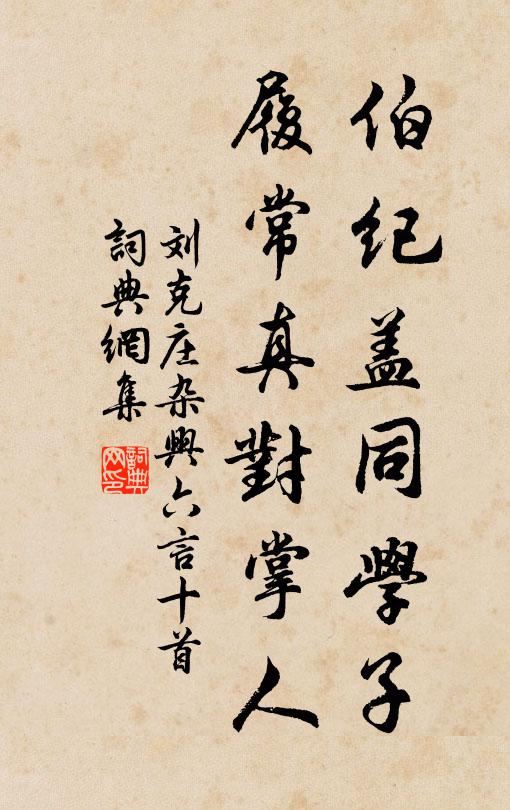 伯纪盖同學子
履常真對掌人
刘克庄杂興六言十首
詞典網集
詞典网印